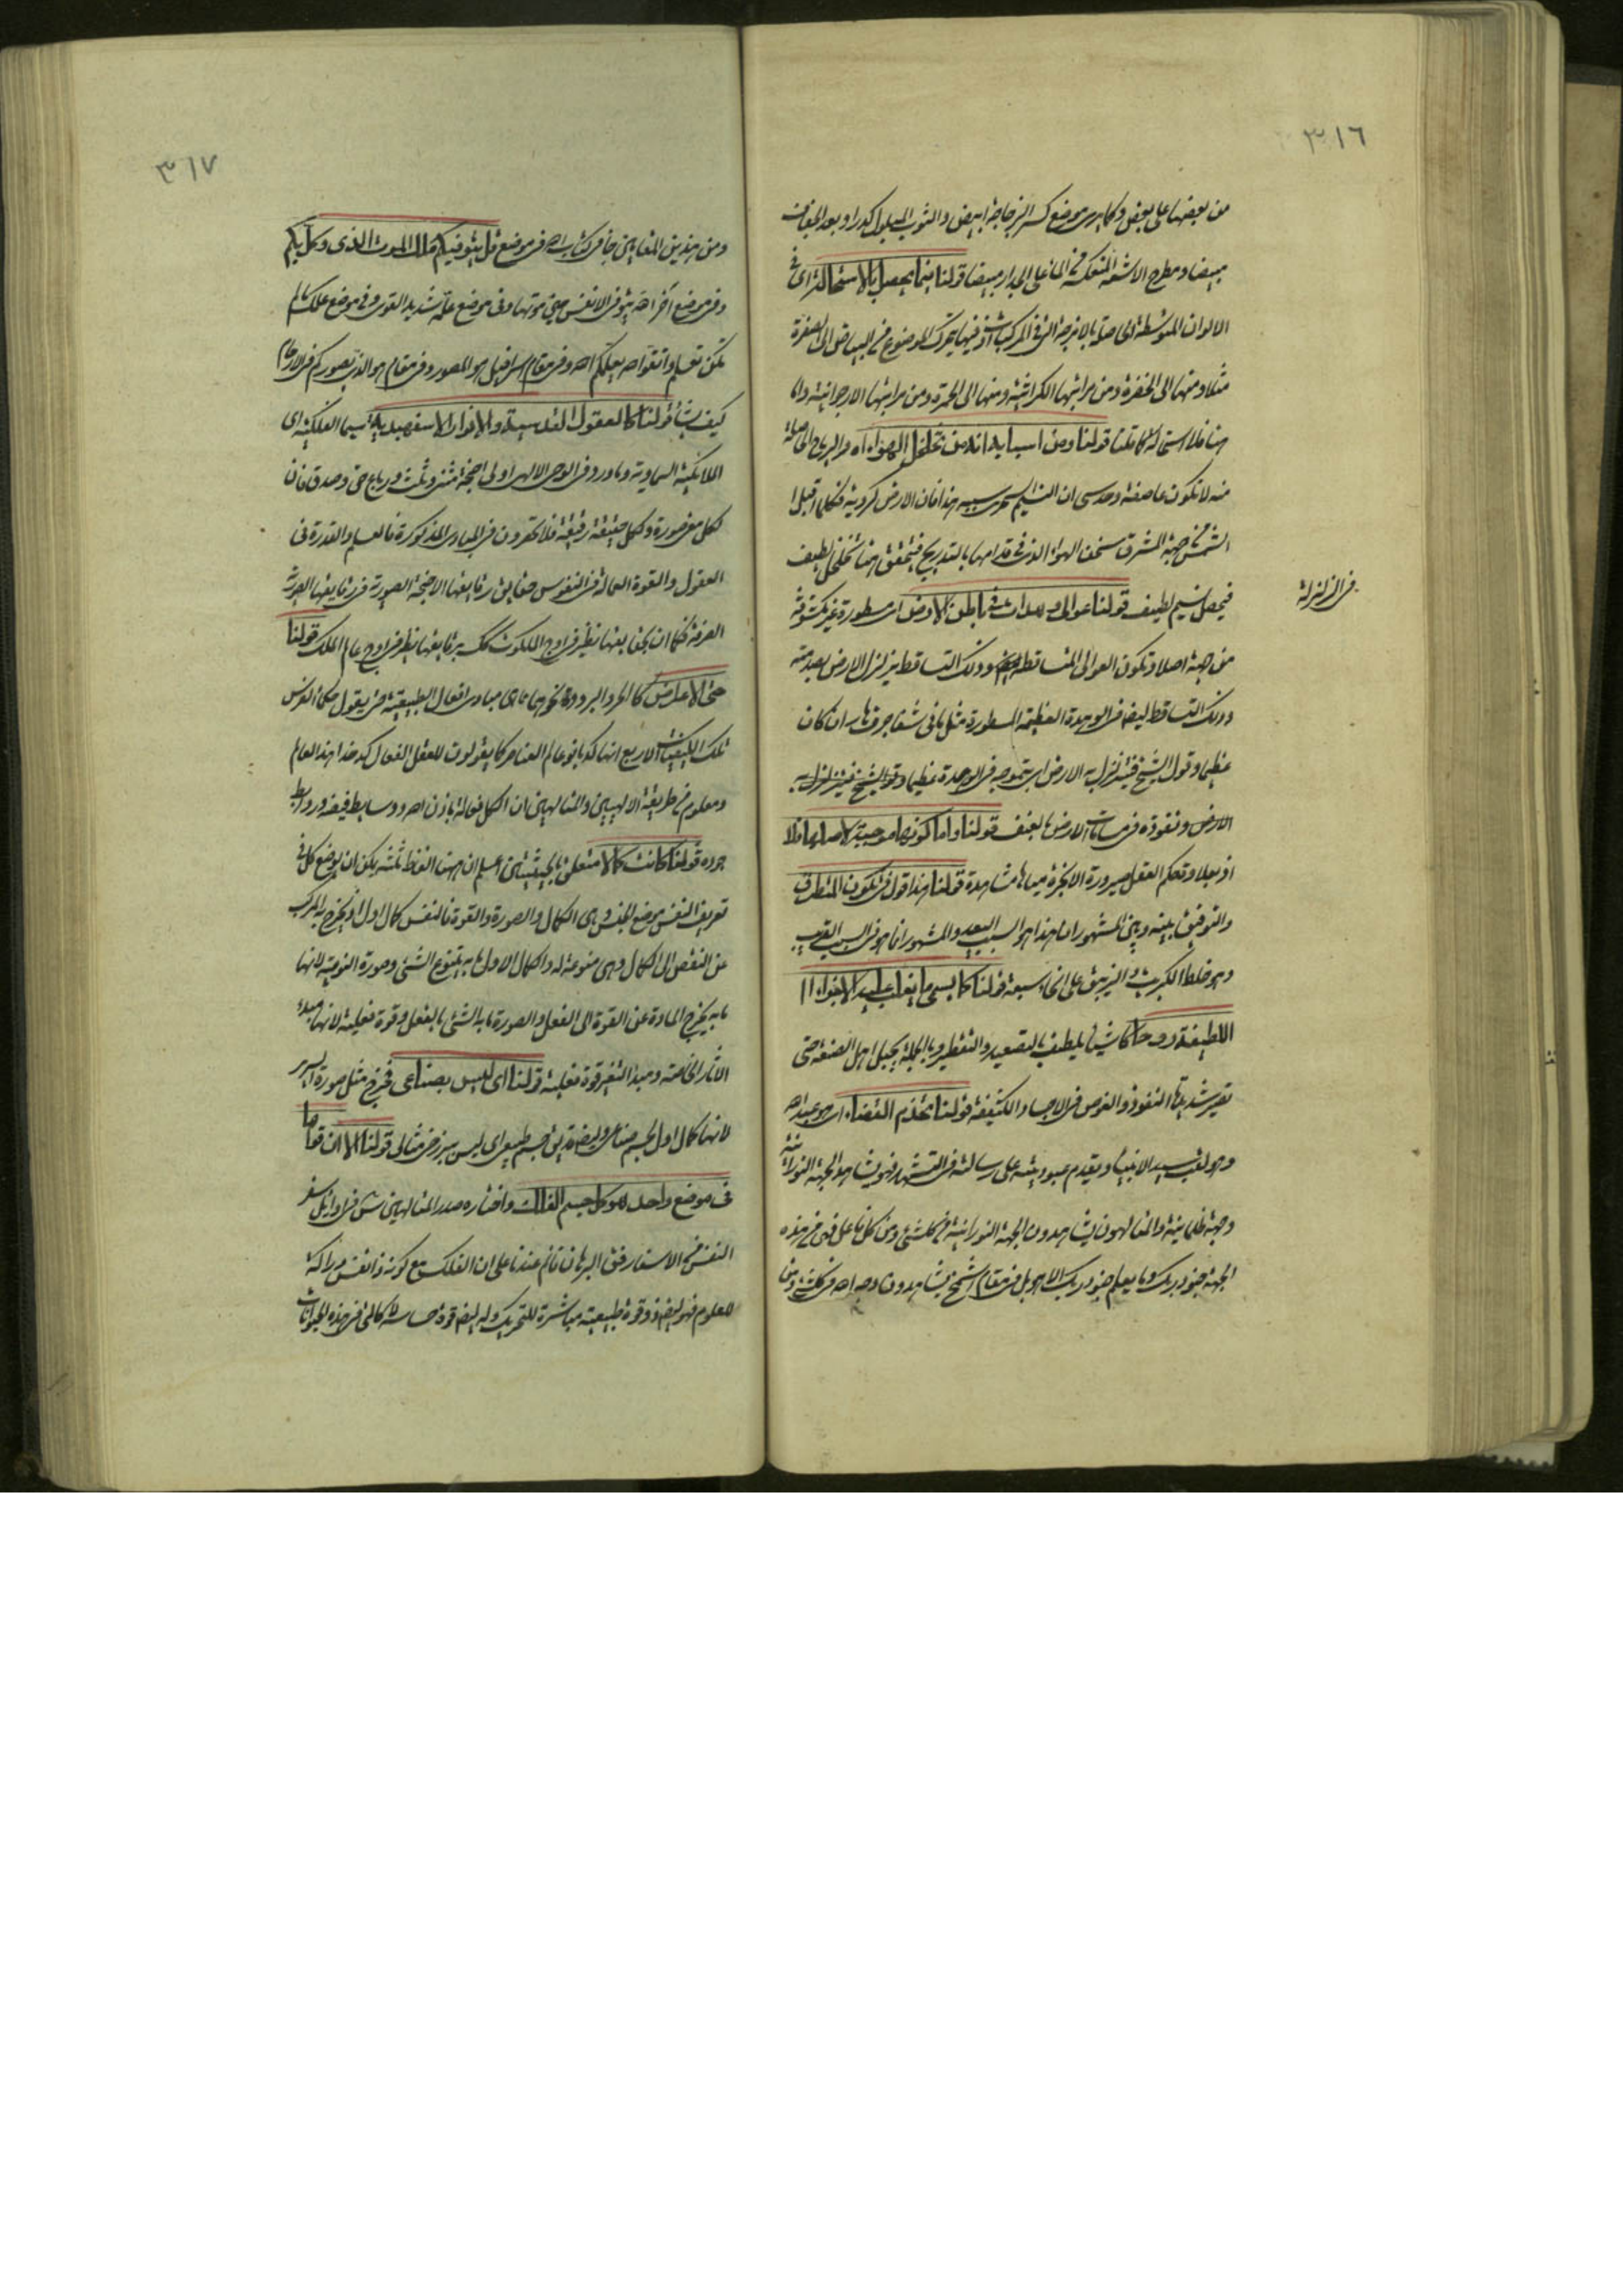 ٣١٦
من بعضها على بعض وكما يرى موضع كسر الزجاجة ابيض والثوب المبلول كدرا وبعد الجفاف
مبيضا ومطرح الاشعة المنعكسة من الماء على الجدار مبيضا قولنا انما يحصل بالاستحالة اى فى
الالوان المتوسطة الحاصلة بالامزجة التى فى المركبات اذ فيها يتحرك الموضوع من البياض الى الصفرة
مثلا ومنها الى الخضرة ومن مراتبها الكراثية ومنها الى الحمرة ومن مراتبها الارجوانية واما
هنا فلا استحالة كما قلنا قولنا ومن اسبابه انه من تخلخل الهواء اه والرياح الحاصلة
منه لا تكون عاصفة وحدسى ان النسيم سببه هذا فان الارض كروية فكلما اقبل
الشمس من جهة المشرق سخن الهواء الذى فى قدامها بالتدريج فيتحقق هنا تخلخل لطيف
فى الزلزلة
فيحصل نسيم لطيف قولنا عوالى وهدات فى باطن الارض اى مسطورة غير مكشوفة
من جهة اصلا وتكون العوالى المتساقطة وذلك التساقط يزلزل الارض بصدمته
وذلك التساقط ايضا فى الوهدة العظيمة المسطورة مثل ما فى شفا جرف هار ان كان
عظيما وقول الشيخ فيتزلزل به الارض اى بتموجه فى الوهدة عظيما وقول الشيخ فيتزلزل به
الارض ونفوذه فى مسامات الارض بعنف قولنا واما كونها موجبة لاصلها فلا
اذ بعلاوة حكم العقل صيرورة الابخرة مياها مشاهدة قولنا هذا قول فى تكون المنطرق
والتوفيق بينه وبين المشهور ان هذا هو السبب البعيد والمشهور انما هو فى السبب القريب
وهو خلط الكبريت والزيبق على انحاء سبعة قولنا كما يسمى ما يغلب عليه الاجزاء
اللطيفة روحا كاشياء يلطف بالتصعيد والتقطير وبالجملة بحيل اهل الصنعة حتى
تصير شديدة النفوذ والغوص فى الاجساد الكثيفة قولنا تخذم القضاء اى هو عبد الله
وهو لقب سيد الانبياء ويقدم عبوديته على رسالته فى التشهد فهو يشاهد الجهة النورانية
وجهة ظلمانية والمتالهون يشاهدون الجهة النورانية من كل شئ ومن كل فاعل فهى من هذه
الجهة جنود ربك وما يعلم جنود ربك الا هو بل فى مقام اشمخ يشاهدون وجه الله فى كل شئ ومن
٣١٧
ومن هذين المقامين جاء فى كتاب الله فى موضع قل يتوفيكم ملك الموت الذى وكل بكم
وفى موضع آخر الله يتوفى الانفس حين موتها وفى موضع علمه شديد القوى وفى موضع علمك ما لم
تكن تعلم واتقوا الله يعلمكم الله وفى مقام اسرافيل هو المصور وفى مقام هو الذى يصوركم فى الارحام
كيف يشاء قولنا كالعقول القدسية والانوار الاسفهبدية سيما الفلكية اى
الملائكة السماوية وما ورد فى الوحى الالهى اولى اجنحة مثنى وثلث ورباع حق وصدق فان
لكل معنى صورة ولكل حقيقة رقيقة فلا تقصرون فى المبادى المذكورة فالعلم والقدرة فى
العقول والقوة العمالة فى النفوس حقايق رقايقها الاجنحة الصورية فى رقايقها الصورية
الصرفة فكما ان بحقايقها يطير فى اوج الملكوت كك برقايقها يطير فى اوج عالم الملك قولنا
حتى الاعراض كالحر والبرد ونحوهما مما هى مبادى افعال الطبيعة حتى يقول حكماء الفرس
تلك الكيفيات الاربع انها كدبانو عالم العناصر كما يقولون للعقل الفعال كدخدا هذا العالم
ومعلوم من طريقة الالهيين والمتالهين ان الكل فعالة باذن الله ووسايط فيضه وروابط
جوده قولنا كانت كمالا متعلق بالحيثيتين اعلم ان هيهنا الفاظ ثلثة يمكن ان يوضع كل فى
تعريف النفس موضع الجنس وهى الكمال والصورة والقوة فالنفس كمال اول اذ يخرج به المركب
من النقص الى الكمال وهى منوعة له والكمال الاول ما به يتنوع الشئ وصورة النوعية لانها
ما به يخرج المادة من القوة الى الفعل والصورة ما به الشئ بالفعل وقوة فعلية لانها مبدء
الاثار الخاصة ومبدأ التغير قوة فعلية قولنا اى ليس بصناعى فخرج مثل صورة السرير
لانها كمال اول لجسم صناعى وايضا جسم طبيعى اى ليس ببرزخ مثالى قولنا الا ان قواها
فى موضع واحد هو كل جسم الفلك واختاره صدر المتالهين س فى اوائل سفر
النفس من الاسفار فقال البرهان قائم عندنا على ان الفلك مع كونه ذا نفس دراكة
للعلوم فهو ايضا ذو قوة طبيعية مباشرة للتحريك وله ايضا قوة حساسة لا كالتى فى هذه الحيوانات